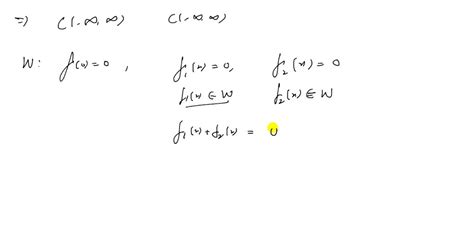 ⇒ C(-∞, ∞) C(-∞, ∞)
W: f(x) = 0, f₁(x) = 0, f₂(x) = 0
f₁(x) ∈ W f₂(x) ∈ W
f₁(x) + f₂(x) = 0